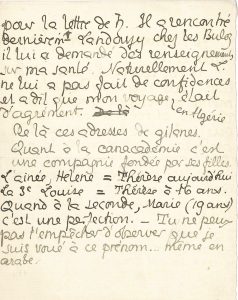 pour la lettre de h. Il a rencontré
dernièremt Landouzy chez les Buloz
il lui a demandé des renseignements
sur ma santé. Naturellement L
ne lui a pas fait de confidences
et a dit que mon voyage était
d'agrément. en Algérie
De là ces adresses de gitanes.
Quant à la canacadémie c'est
une compagnie fondée par ses filles.
L'ainée, Hélène = Thérèse aujourd'hui
La 3e Louise = Thérèse à 16 ans.
Quand à la seconde, Marie (19 ans)
c'est une perfection. — Tu ne peux
pas t'empêcher d'observer que je
suis voué à ce prénom... même en
arabe.